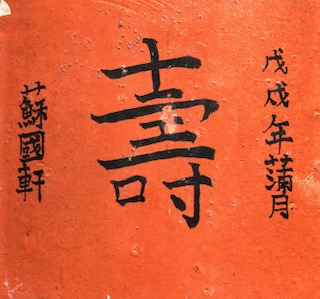 戊戌年蒲月
壽
蘇國軒